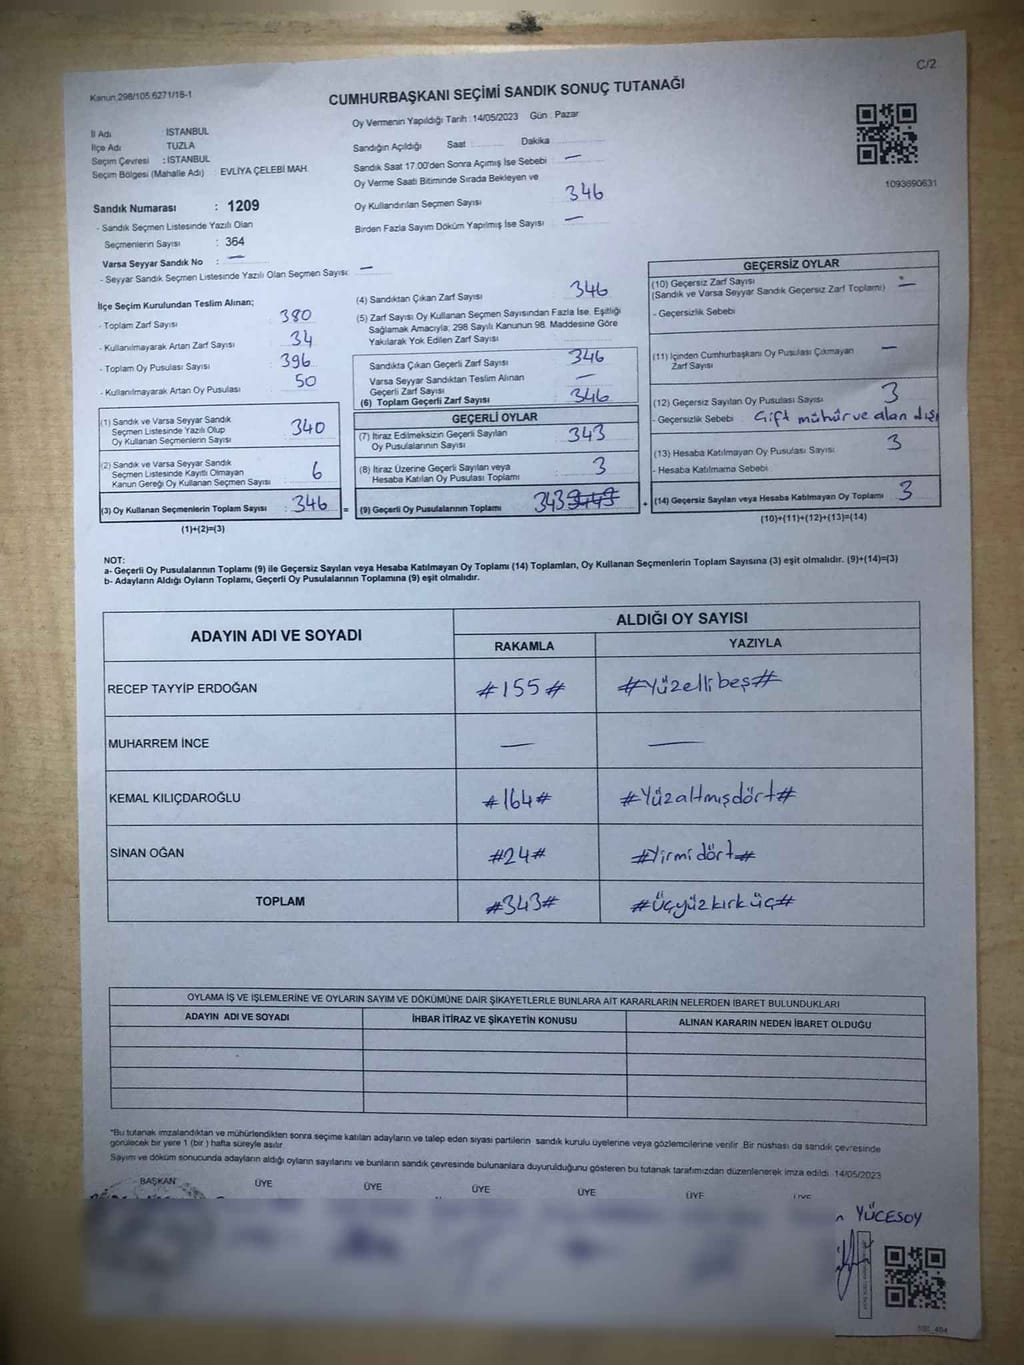 C/2
Kanun:298/105.6271/16-1
CUMHURBAŞKANI SEÇİMİ SANDIK SONUÇ TUTANAĞI
İl Adı : İSTANBUL
İlçe Adı : TUZLA
Seçim Çevresi : İSTANBUL
Seçim Bölgesi (Mahalle Adı) : EVLİYA ÇELEBİ MAH.
Sandık Numarası : 1209
- Sandık Seçmen Listesinde Yazılı Olan
Seçmenlerin Sayısı : 364
Varsa Seyyar Sandık No : —
- Seyyar Sandık Seçmen Listesinde Yazılı Olan Seçmen Sayısı: —
Oy Vermenin Yapıldığı Tarih : 14/05/2023 Gün : Pazar
Sandığın Açıldığı Saat Dakika
Sandık Saat 17:00'den Sonra Açılmış İse Sebebi —
Oy Verme Saati Bitiminde Sırada Bekleyen ve
Oy Kullandırılan Seçmen Sayısı 346
Birden Fazla Sayım Döküm Yapılmış İse Sayısı —
1093690631
İlçe Seçim Kurulundan Teslim Alınan;
- Toplam Zarf Sayısı 380
- Kullanılmayarak Artan Zarf Sayısı 34
- Toplam Oy Pusulası Sayısı 396
- Kullanılmayarak Artan Oy Pusulası 50
(1) Sandık ve Varsa Seyyar Sandık
Seçmen Listesinde Yazılı Olup
Oy Kullanan Seçmenlerin Sayısı : 340
(2) Sandık ve Varsa Seyyar Sandık
Seçmen Listesinde Kayıtlı Olmayan
Kanun Gereği Oy Kullanan Seçmen Sayısı : 6
(3) Oy Kullanan Seçmenlerin Toplam Sayısı : 346
(1)+(2)=(3)
(4) Sandıktan Çıkan Zarf Sayısı 346
(5) Zarf Sayısı Oy Kullanan Seçmen Sayısından Fazla İse, Eşitliği
Sağlamak Amacıyla; 298 Sayılı Kanunun 98. Maddesine Göre
Yakılarak Yok Edilen Zarf Sayısı
Sandıkta Çıkan Geçerli Zarf Sayısı 346
Varsa Seyyar Sandıktan Teslim Alınan
Geçerli Zarf Sayısı —
(6) Toplam Geçerli Zarf Sayısı 346
GEÇERLİ OYLAR
(7) İtiraz Edilmeksizin Geçerli Sayılan
Oy Pusulalarının Sayısı 343
(8) İtiraz Üzerine Geçerli Sayılan veya
Hesaba Katılan Oy Pusulası Toplamı 3
= (9) Geçerli Oy Pusulalarının Toplamı 343
GEÇERSİZ OYLAR
(10) Geçersiz Zarf Sayısı
(Sandık ve Varsa Seyyar Sandık Geçersiz Zarf Toplamı) —
- Geçersizlik Sebebi
(11) İçinden Cumhurbaşkanı Oy Pusulası Çıkmayan
Zarf Sayısı —
(12) Geçersiz Sayılan Oy Pusulası Sayısı 3
- Geçersizlik Sebebi : Çift mühür ve alan dışı
(13) Hesaba Katılmayan Oy Pusulası Sayısı 3
- Hesaba Katılmama Sebebi
+ (14) Geçersiz Sayılan veya Hesaba Katılmayan Oy Toplamı 3
(10)+(11)+(12)+(13)=(14)
NOT:
a- Geçerli Oy Pusulalarının Toplamı (9) ile Geçersiz Sayılan veya Hesaba Katılmayan Oy Toplamı (14) Toplamları, Oy Kullanan Seçmenlerin Toplam Sayısına (3) eşit olmalıdır. (9)+(14)=(3)
b- Adayların Aldığı Oyların Toplamı, Geçerli Oy Pusulalarının Toplamına (9) eşit olmalıdır.
ADAYIN ADI VE SOYADI
ALDIĞI OY SAYISI
RAKAMLA YAZIYLA
RECEP TAYYİP ERDOĞAN #155# #Yüzellibeş#
MUHARREM İNCE — —
KEMAL KILIÇDAROĞLU #164# #Yüzaltmışdört#
SİNAN OĞAN #24# #Yirmidört#
TOPLAM #343# #Üçyüzkırküç#
OYLAMA İŞ VE İŞLEMLERİNE VE OYLARIN SAYIM VE DÖKÜMÜNE DAİR ŞİKAYETLERLE BUNLARA AİT KARARLARIN NELERDEN İBARET BULUNDUKLARI
ADAYIN ADI VE SOYADI İHBAR İTİRAZ VE ŞİKAYETİN KONUSU ALINAN KARARIN NEDEN İBARET OLDUĞU
*Bu tutanak imzalandıktan ve mühürlendikten sonra seçime katılan adayların ve talep eden siyasi partilerin sandık kurulu üyelerine veya gözlemcilerine verilir. Bir nüshası da sandık çevresinde
görülecek bir yere 1 (bir) hafta süreyle asılır.
Sayım ve döküm sonucunda adayların aldığı oyların sayılarını ve bunların sandık çevresinde bulunanlara duyurulduğunu gösteren bu tutanak tarafımızdan düzenlenerek imza edildi. 14/05/2023
BAŞKAN ÜYE ÜYE ÜYE ÜYE ÜYE ÜYE
YÜCESOY